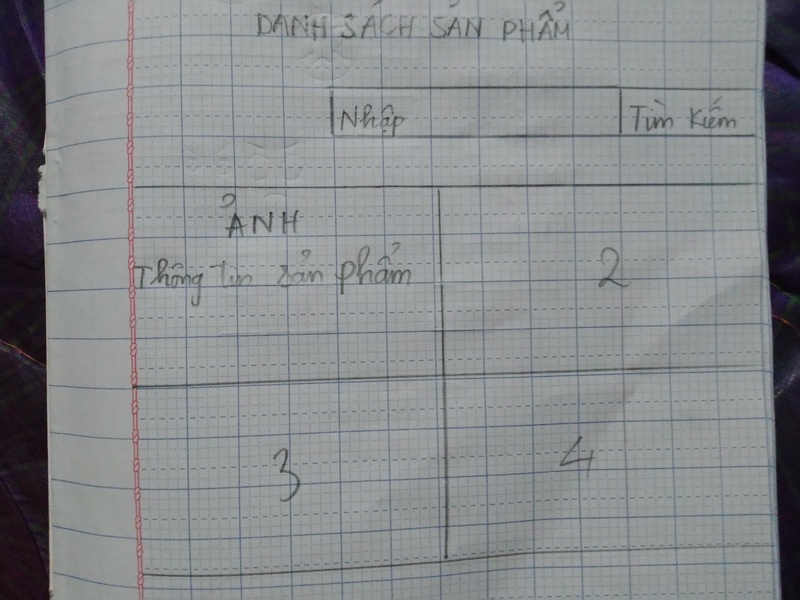 DANH SÁCH SẢN PHẨM
Nhập Tìm Kiếm
ẢNH
Thông tin sản phẩm
2
3
4